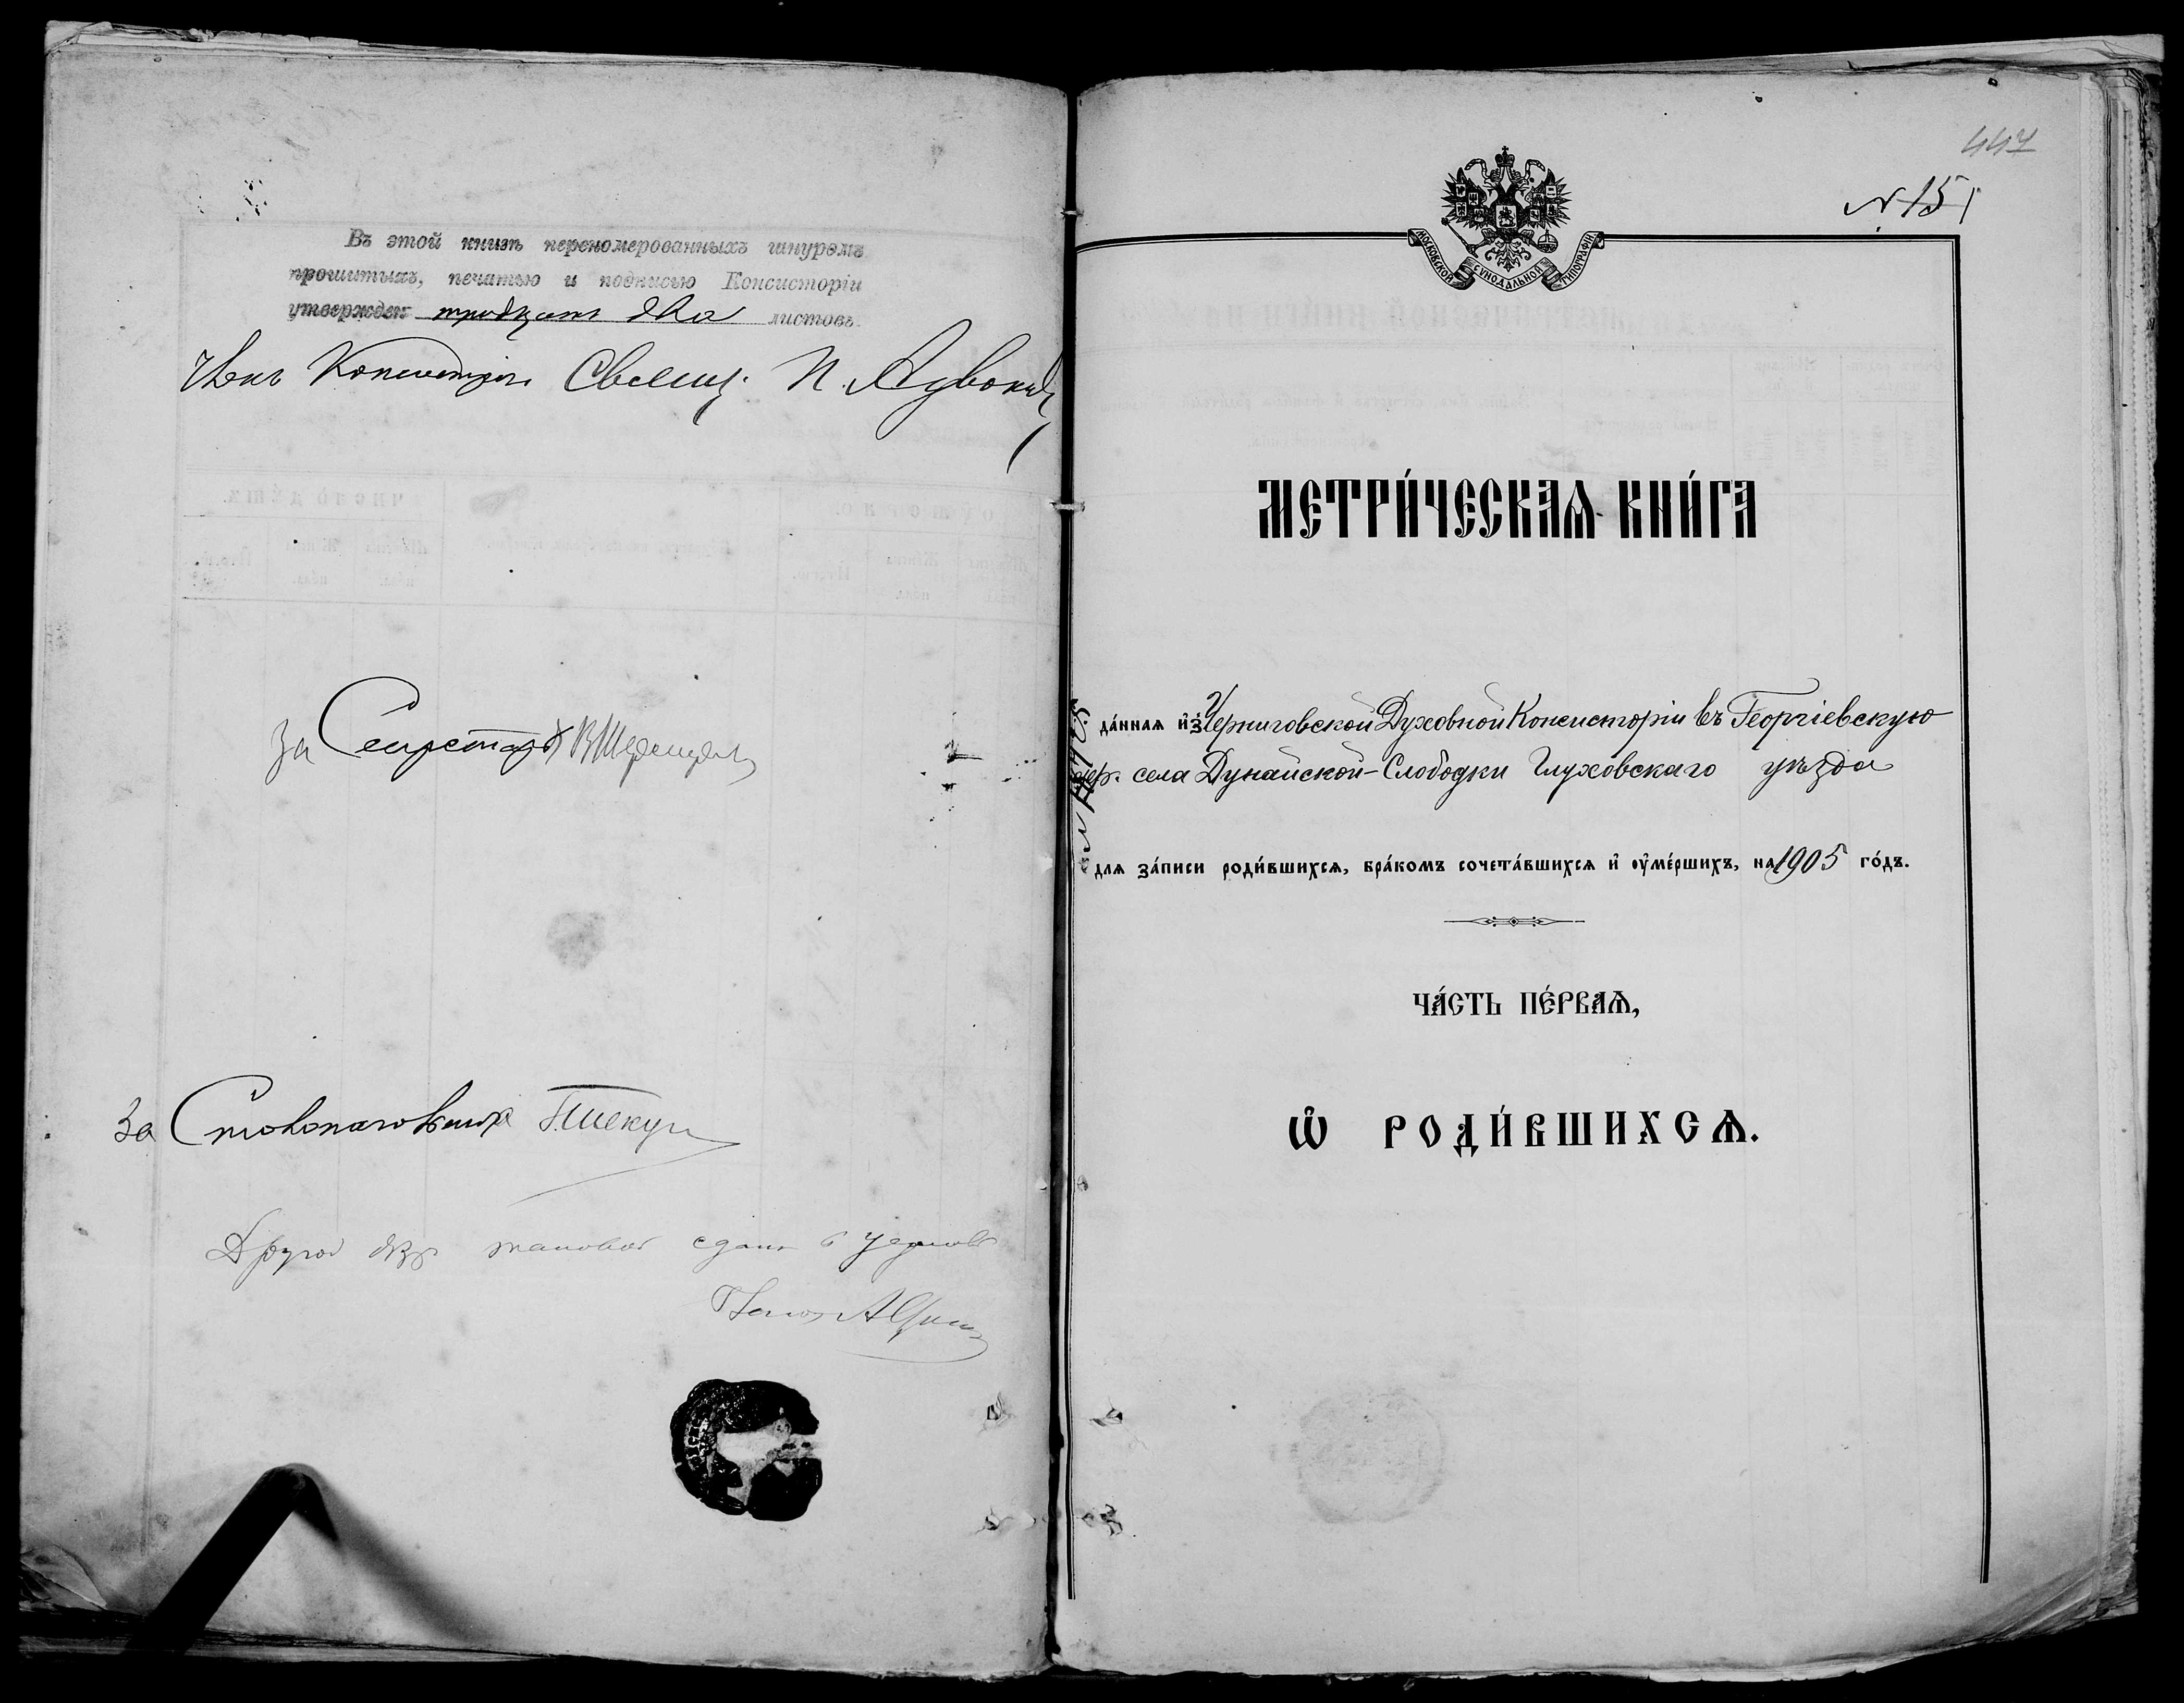 Въ этой книгѣ перекомерованныхъ шнуромъ
прошитыхъ, печатью и подписью Консисторіи
утвержден тридцать два листовъ.
Членъ Консисторіи Священ. П.
За Секретаря
За Столоначальника
Другой экз.
447
№ 151
МОСКОВСКОЙ СѴНОДАЛЬНОЙ ТИПОГРАФІИ
МЕТРИ́ЧЕСКАѦ КНИ́ГА
да́нная и҆з̾ Черниговской Духовной Консисторіи въ Георгіевскую
цер. села Дунайской-Слободки Глуховскаго уѣзда
для за́писи роди́вшихсѧ, бра́комъ сочета́вшихсѧ и҆ ᲂу҆ме́ршихъ, на 1905 го́дъ.
ЧА́СТЬ ПЕ́РВАѦ,
Ѽ РОДИ́ВШИХСѦ.